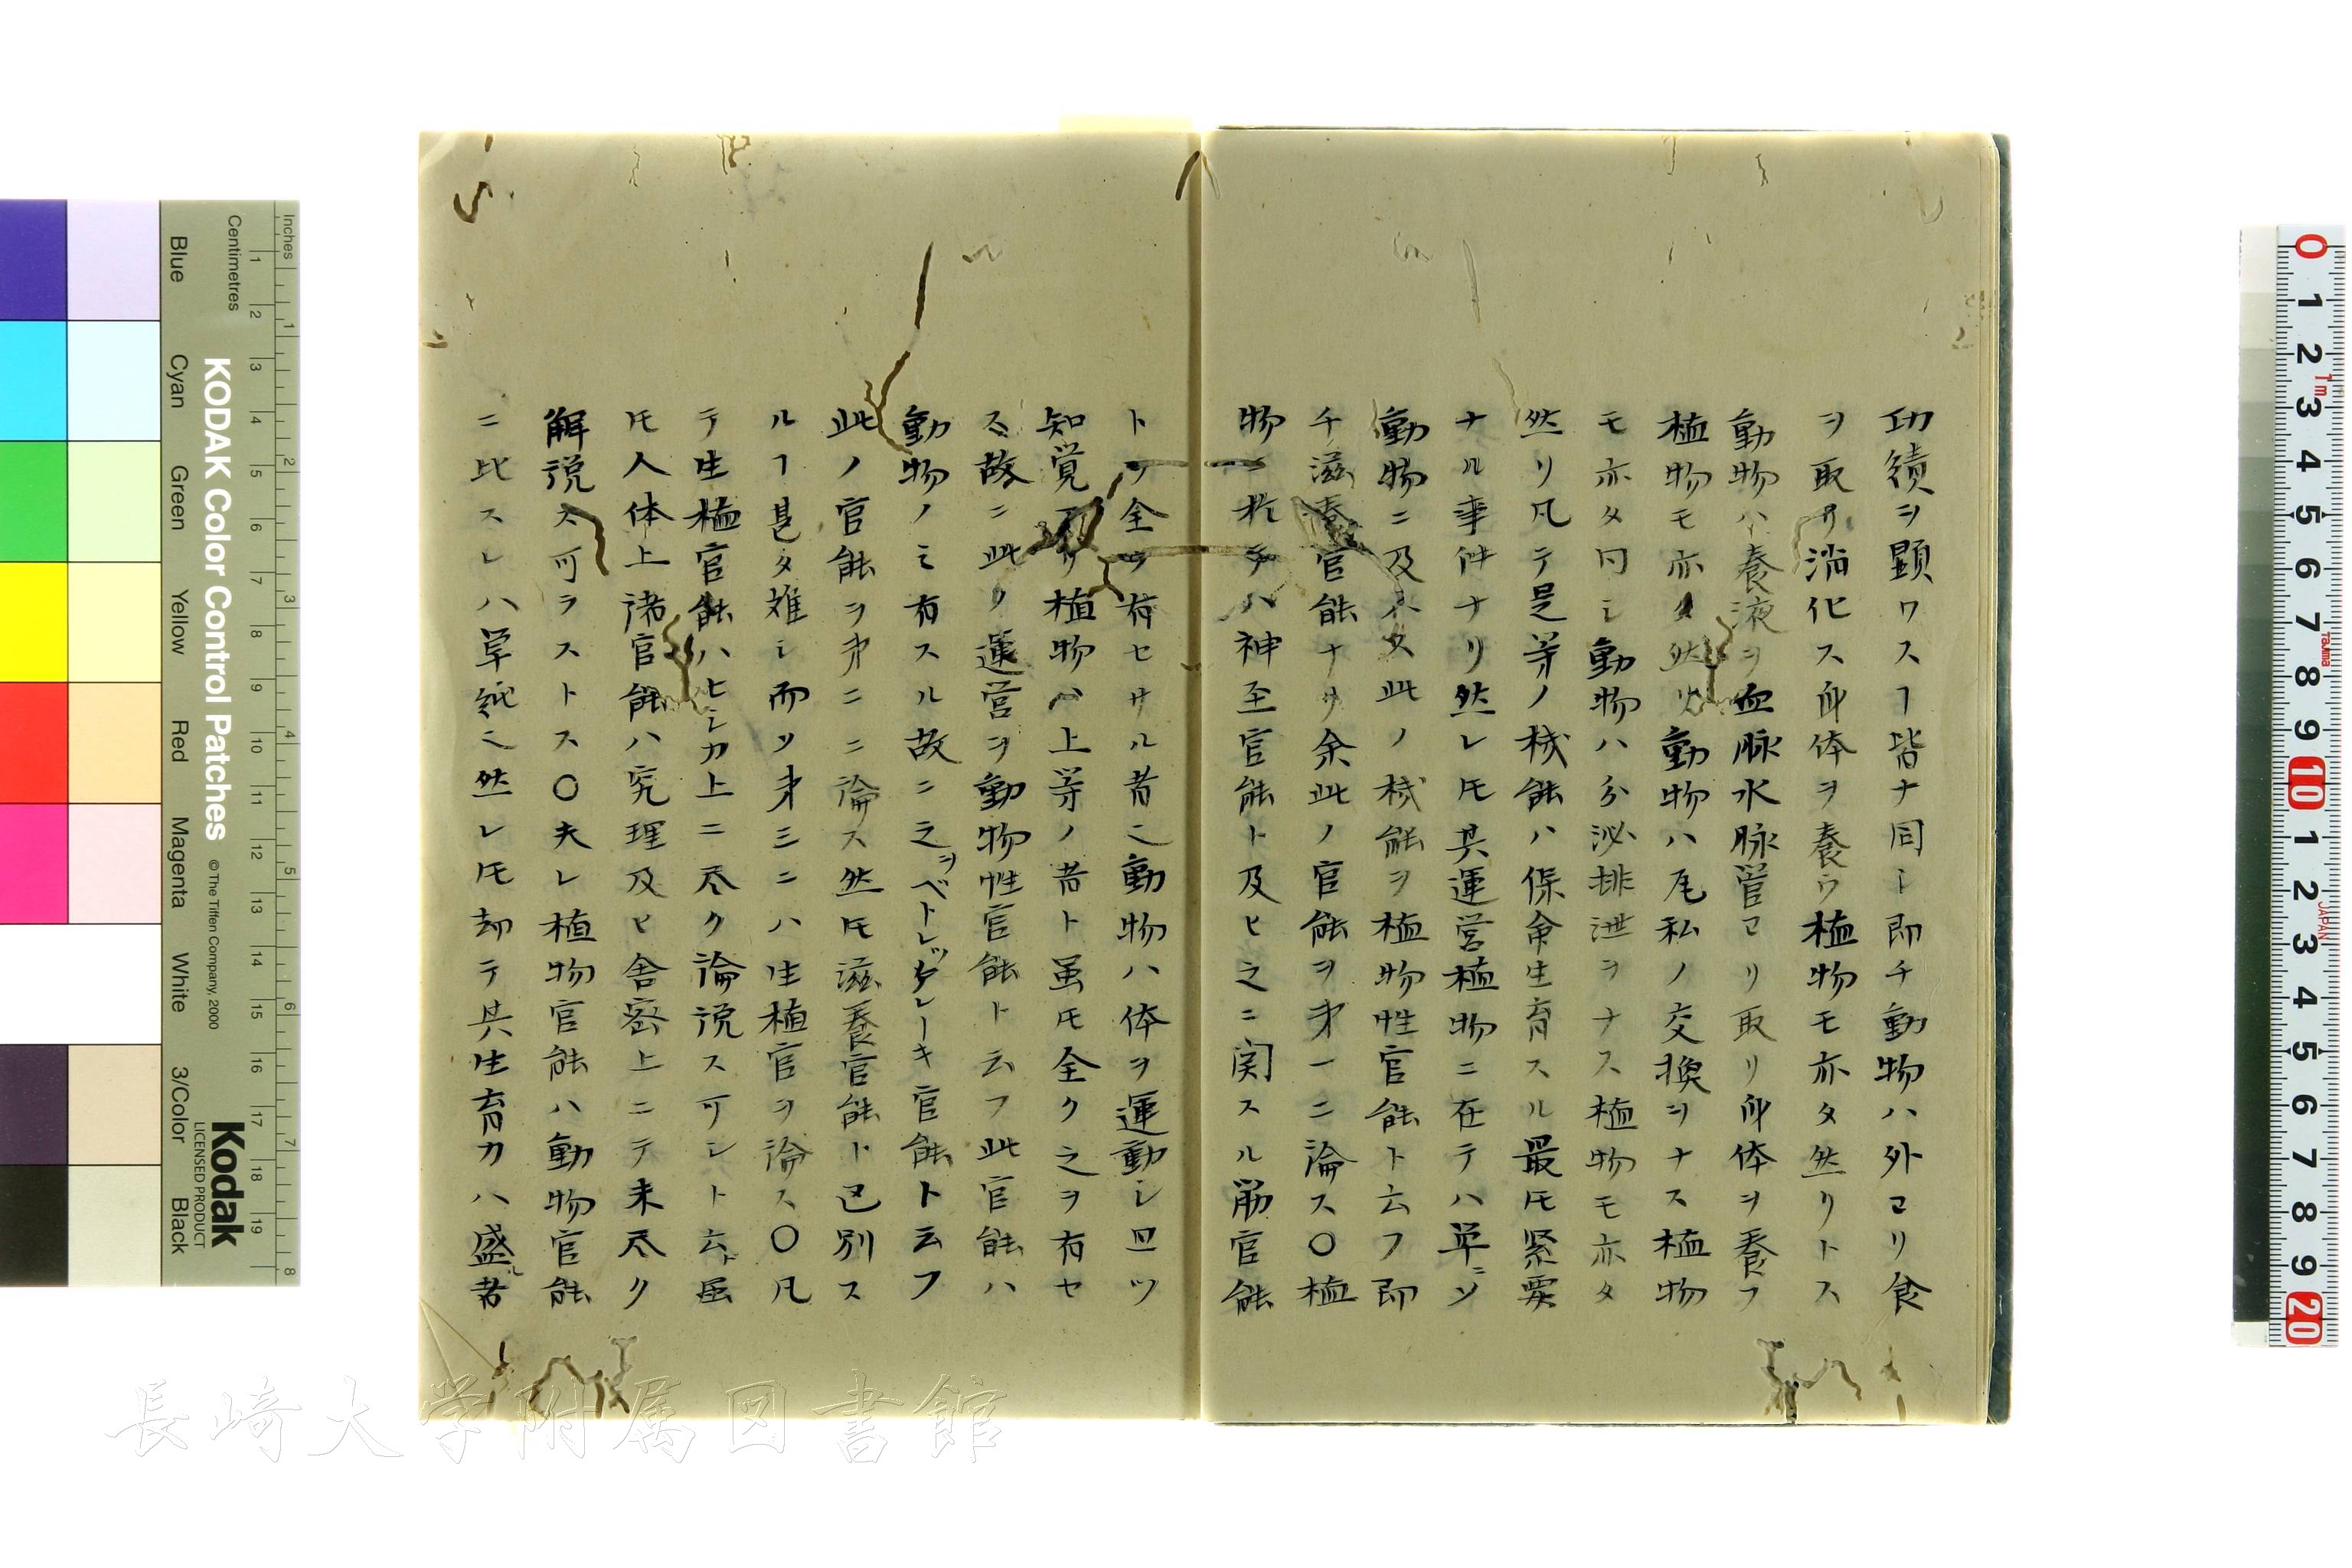 功績ヲ顕ワスヿ皆ナ同シ即チ動物ハ外ヨリ食
ヲ取リ消化ス而体ヲ養ウ植物モ亦タ然リトス
動物ハ養液ヲ血脉水脉管ヨリ取リ而体ヲ養フ
植物モ亦タ然リ動物ハ瓦私ノ交換ヲナス植物
モ亦タ同シ動物ハ分泌排泄ヲナス植物モ亦タ
然リ凡テ是等ノ機能ハ保命生育スル最モ緊要
ナル事件ナリ然レ𪜈其運営植物ニ在テハ単ニソ
動物ニ及ハス此ノ機能ヲ植物性官能ト云フ即
チ滋養官能ナリ余此ノ官能ヲ㐧一ニ論ス〇植
物ニ於テハ神圣官能ト及ヒ之ニ関スル筋官能
トヲ全ク有セサル者ニ動物ハ体ヲ運動シ且ツ
知覚アリ植物ハ上等ノ者ト虽𪜈全ク之ヲ有セ
ス故ニ此ノ運営ヲ動物性官能ト云フ此官能ハ
動物ノミ有スル故ニ之ヲベトレッケレーキ官能ト云フ
此ノ官能ヲ㐧二ニ論ス然𪜈滋養官能ト已別ス
ルヿ甚タ難シ而ソ㐧三ニハ生植官ヲ論ス〇凡
テ生植官能ハヒシカ上ニ尽ク論説ス可シト云ト虽
𪜈人体上諸官能ハ究理及ヒ舎密上ニテ未尽ク
解説ス可ラストス〇夫レ植物官能ハ動物官能
ニ比スレハ単純ニ然レ𪜈却テ其生育力ハ盛ル者
Inches
Centimetres
KODAK Color Control Patches
© The Tiffen Company, 2000
Kodak
LICENSED PRODUCT
Blue Cyan Green Yellow Red Magenta White 3/Color Black
長崎大学附属図書館